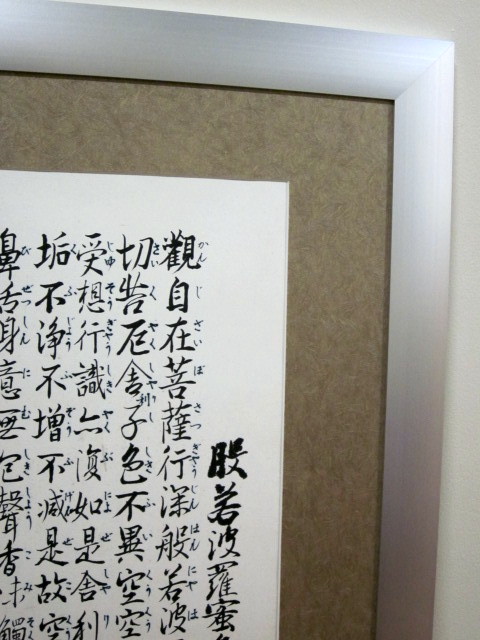 般若波羅蜜
觀自在菩薩行深般若波
切苦厄舍利子色不異空空
受想行識亦復如是舍利
垢不浄不增不減是故空
鼻舌身意無色聲香味觸